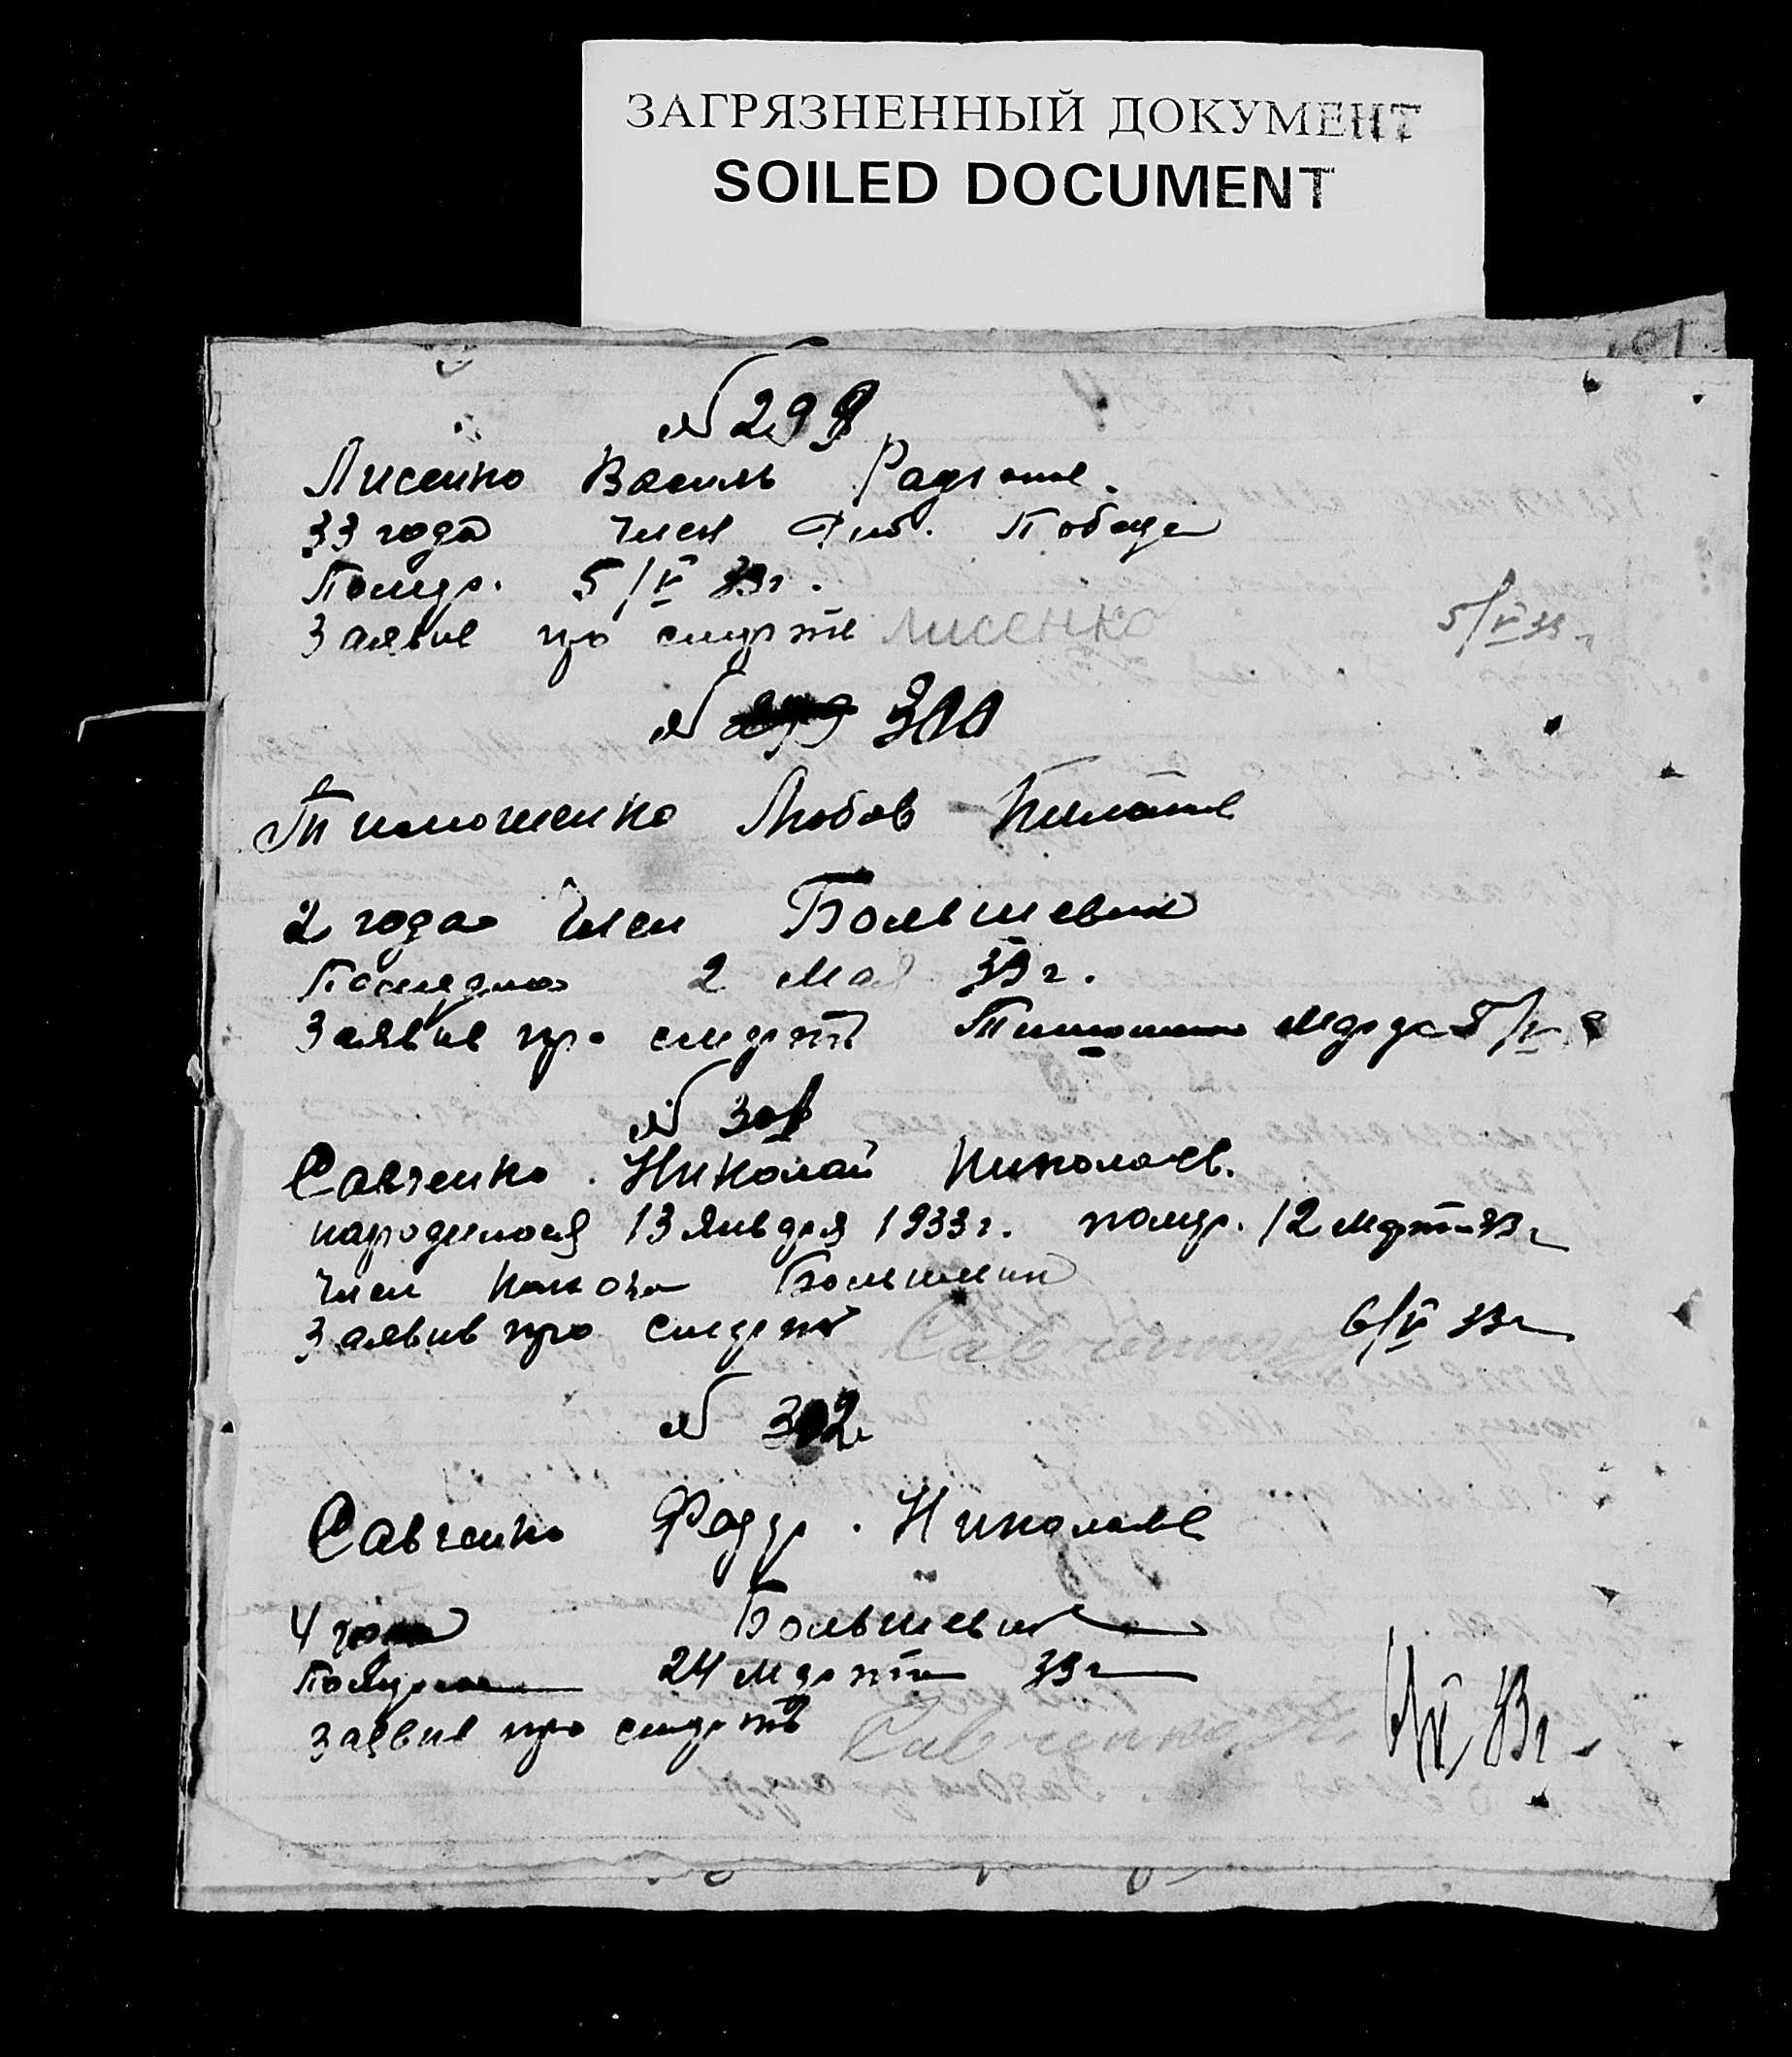 ЗАГРЯЗНЕННЫЙ ДОКУМЕНТ
SOILED DOCUMENT
№ 299
Лисенко Василь Радионов.
33 года член Победа
Помер. 5/V 33 г.
Заявив про смерть Лисенко 5/V 33 г.
№ 300
Тимошенко Любов
2 года член Большевик
2 Мая 33 г.
Заявив про смерть Тимошенко 5/V
№ 301
Савченко Николай Николаев.
народился 13 Января 1933 г. помер. 12 Марта 33 г
член Большевик
Заявив про смерть Савченко 6/V 33 г
№ 302
Савченко Федор. Николаев
4 года Большевик
24 Марта 33 г
Заявив про смерть Савченко 6/V 33 г